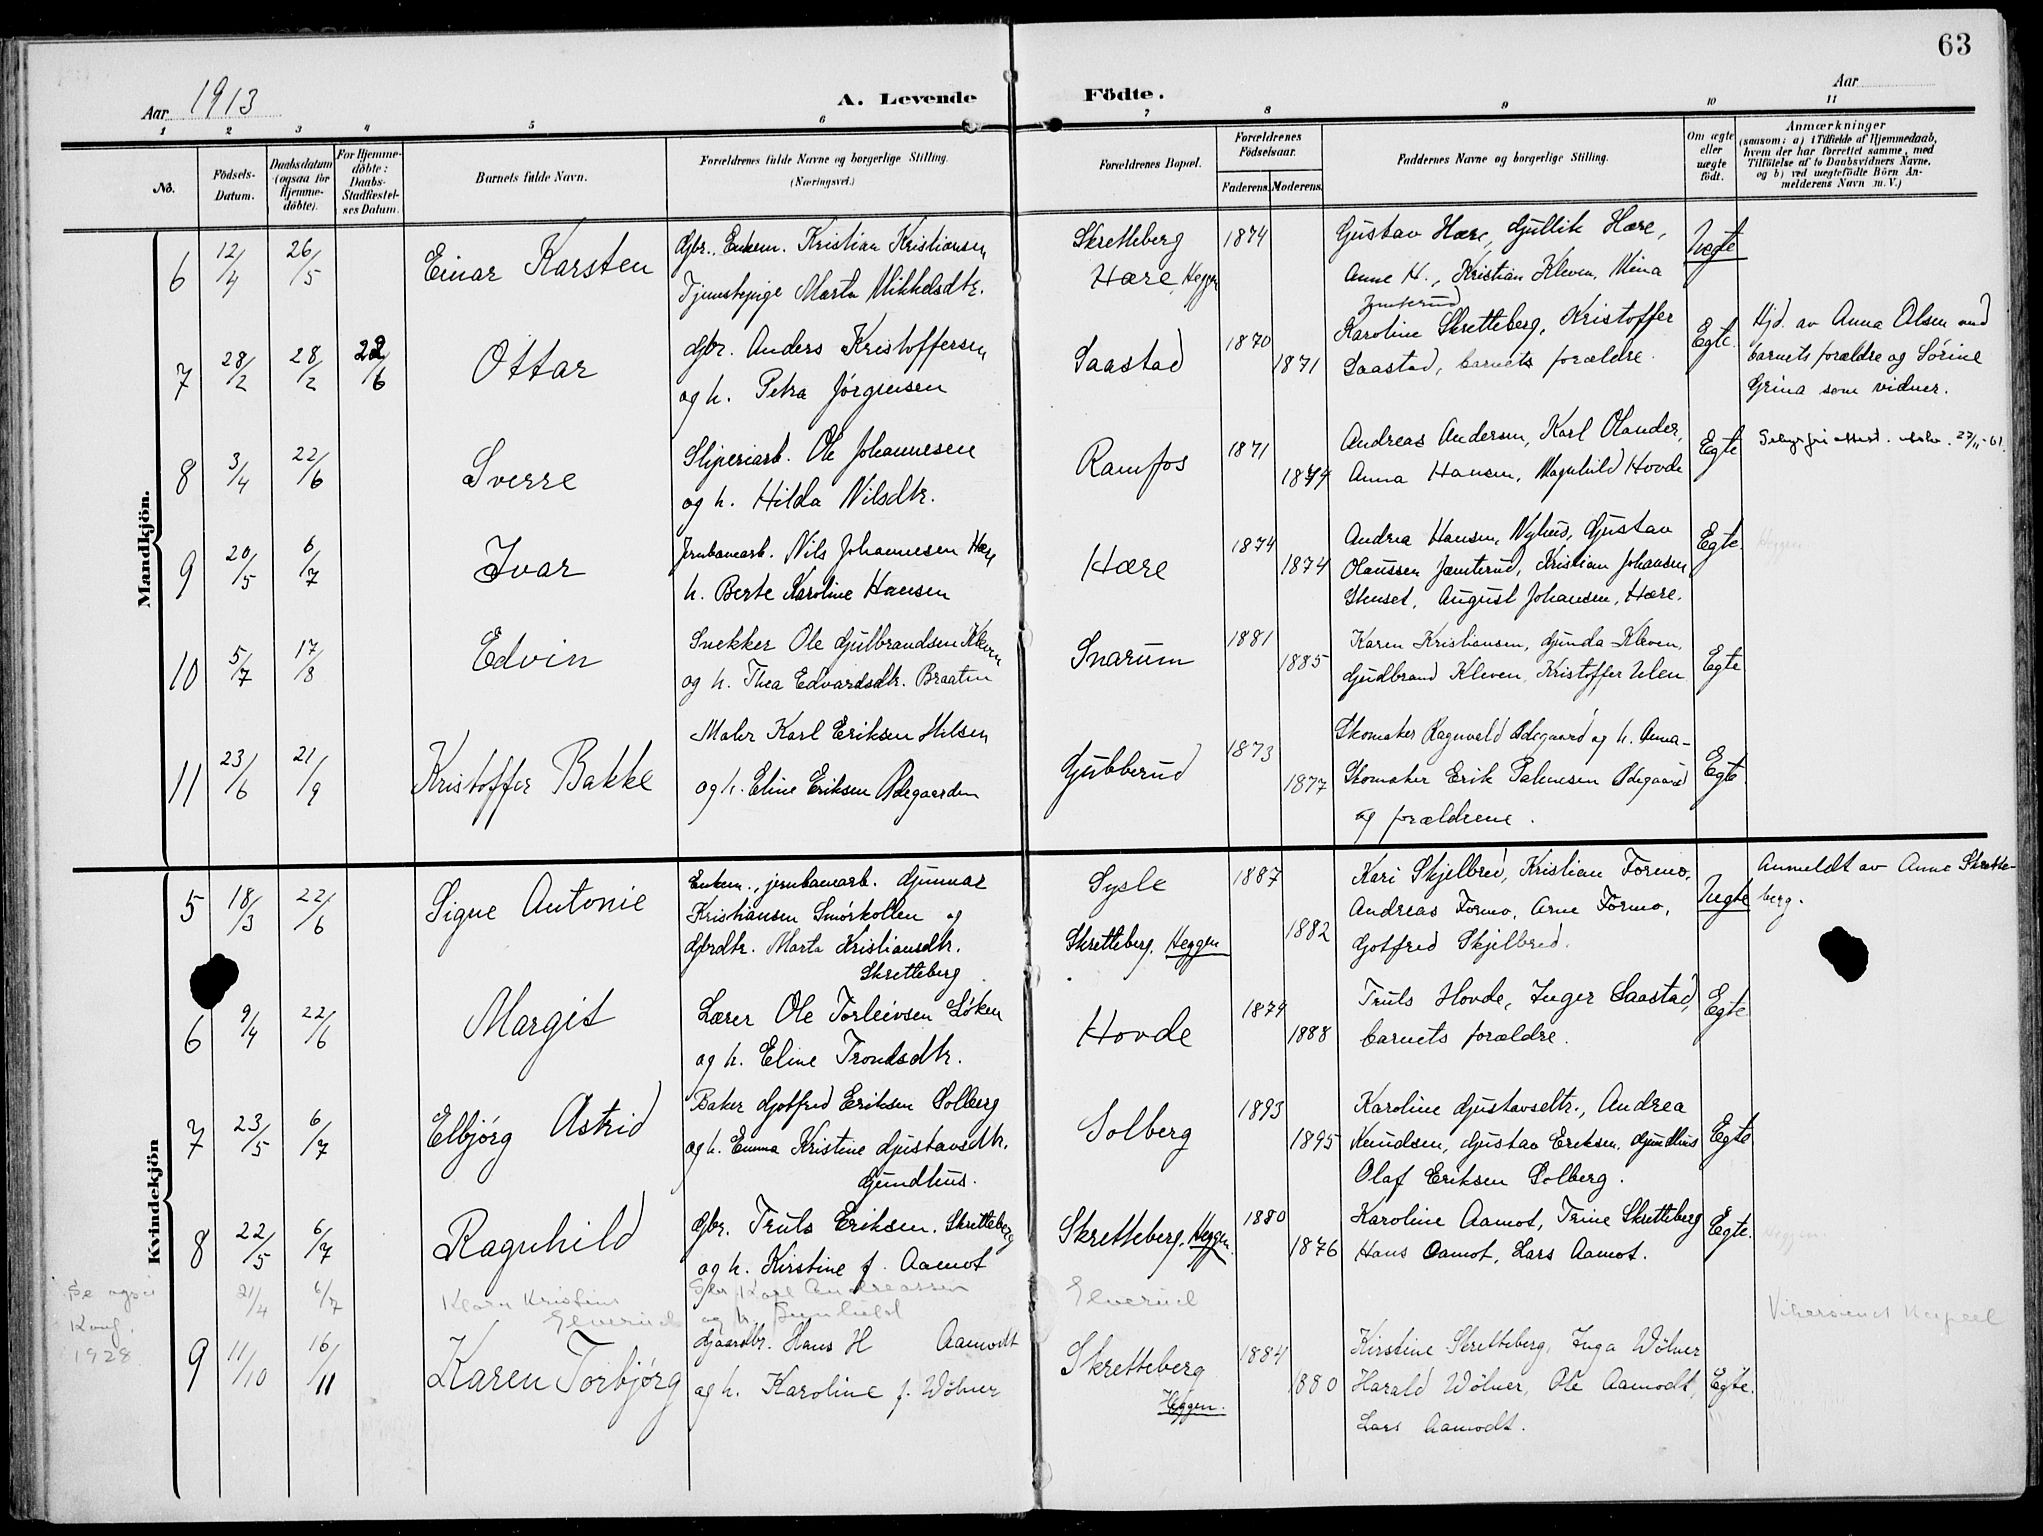 63
Aar 1913
A. Levende Födte.
Aar
1 2 3 4 5 6 7 8 9 10 11
No.
Födsels-Datum.
Daabsdatum (ogsaa for Hjemme-döbte).
For Hjemme-döbte: Daabs-Stadfæstel-ses Datum.
Barnets fulde Navn.
Forældrenes fulde Navne og borgerlige Stilling. (Næringsvei.)
Forældrenes Bopæl.
Forældrenes Födselsaar.
Faderens. Moderens.
Faddernes Navne og borgerlige Stilling.
Om ægte eller uægte födt.
Anmærkninger
(saasom: a) i Tilfælde af Hjemmedaab,
hvem der har forrettet samme, med
Tilföielse af to Daabsvidners Navne,
og b) ved uægtefödte Börn An-
melderens Navn m. V.)
Mandkjön.
6 12/4 26/5 Einar Karsten
Gbr., Enkem. Kristian Kristiansen
Tjenestepige Marta Mikkelsdtr.
Skretteberg
Hære, Heggen
1874
Gustav Hære, Gullik Hære,
Anne H., Kristian Kleven, Mina
Uægte
7 28/2 28/2 22/6 Ottar
Gbr. Anders Kristoffersen
og h. Petra Jørgensen
Saastad
1870 1871
Karoline Skretteberg, Kristoffer
Saastad, barnets forældre.
Egte.
Hjd. av Anna Olsen med
barnets forældre og Sørine
Grina som vidner.
8 3/4 22/6 Sverre
Sliperiarb. Ole Johannesen
og h. Hilda Nilsdtr.
Ramfos
1871 1874
Andreas Andersen, Karl Olander,
Anna Hansen, Magnhild Hovde
Egte
9 20/5 6/7 Ivar
Jernbanearb. Nils Johannesen Hære
h. Berte Karoline Hansen
Hære
1874 1874
Andrea Hansen, Nyhus, Gustav
Olaussen Jamterud, Kristian Johansen
August Johansen, Hære.
Egte.
Heggen
10 5/7 17/8 Edvin
Snekker Ole Gulbrandsen Kleven
og h. Thea Edvardsdtr. Braaten
Snarum
1881 1885
Karen Kristiansen, Gunda Kleven,
Gudbrand Kleven, Kristoffer Ulen
Egte
11 23/6 21/9 Kristoffer Bakke
Maler Karl Eriksen
og h. Eline Eriksen Ødegaarden
Gubberud
1873 1877
Skomaker Ragnvald Ødegaard og h. Anna-
Skomaker Erik Ødegaard
og forældrene.
Egte
Kvindekjön
5 18/3 22/6 Signe Antonie
Enkem., jernbanearb. Gunnar
Kristiansen Smörkollen og
Gbrdtr. Marta Kristiansdtr.
Skretteberg
Sysle
Skretteberg, Heggen
1887 1882
Kari Skjelbred, Kristian Formo,
Andreas Formo, Arne Formo,
Gotfred Skjelbred.
Uegte
Anmeldt av Anne Skrette-
berg.
6 9/4 22/6 Margit
Lærer Ole Torleivsen Løken
og h. Eline Trondsdtr.
Hovde
1874 1888
Truls Hovde, Inger Saastad,
barnets forældre.
Egte
7 23/5 6/7 Elbjørg Astrid
Baker Gotfred Eriksen Solberg
og h. Emma Kristine Gustavsdtr.
Gundhus.
Solberg
1893 1895
Karoline Gustavsdtr., Andrea
Knudsen, Gustav Eriksen Gundhus
Olaf Eriksen Solberg.
Egte
8 22/5 6/7 Ragnhild
Gbr. Truls Eriksen. Skretteberg
og h. Kirstine f. Aamot
Skretteberg, Heggen.
1880 1876
Karoline Aamot, Trine Skretteberg
Hans Aamot, Lars Aamot.
Egte.
Heggen
Se også
Konf.
1928
21/4 6/7 Klara Kristine
Elverud
Karl Andreassen
og h. Gunhild
Elverud
Vikersund Kapell
9 11/10 16/11 Karen Torbjørg
Gaardbr. Hans H Aamodt
og h. Karoline f. Wölner
Skretteberg
Heggen.
1884 1880
Kirstine Skretteberg, Inga Wölner
Harald Wölner, Ole Aamodt,
Lars Aamodt.
Egte.